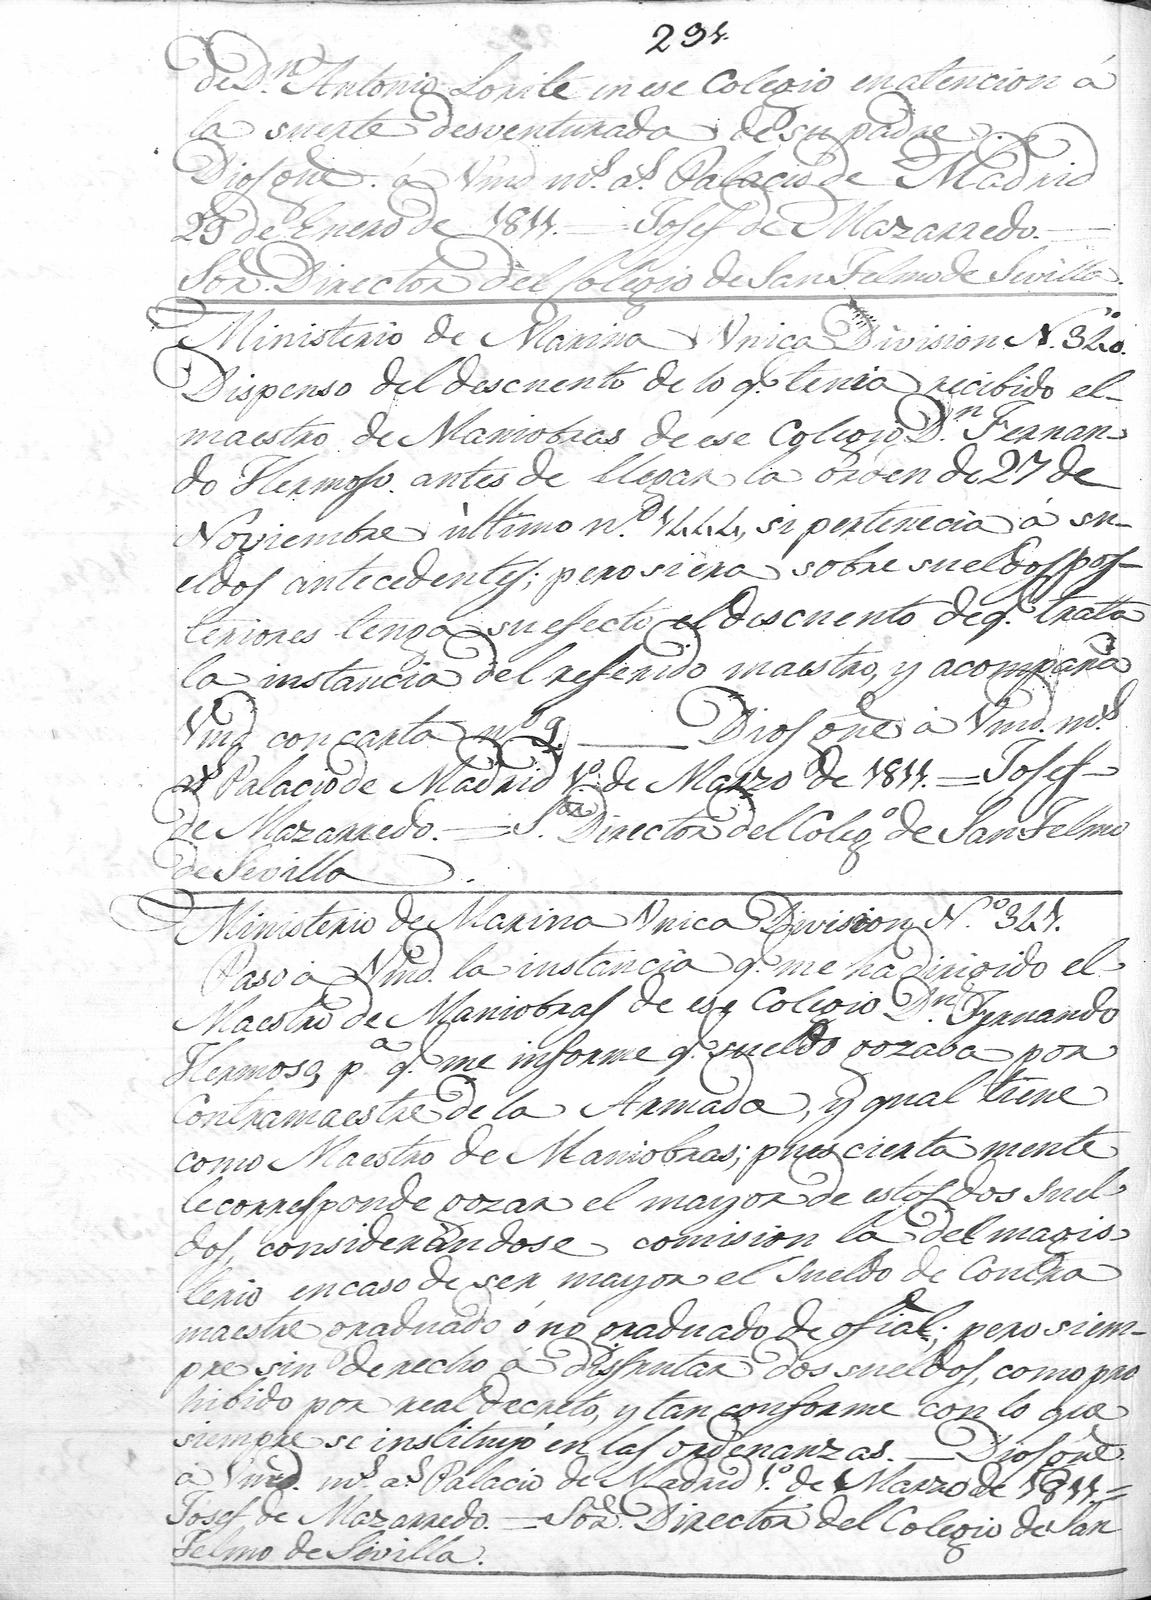 291.
de Dn. Antonio Lorite en ese Colegio en atencion á
la suerte desventurada de su padre.
Dios gue. á Vmd ms. as. Palacio de Madrid
29 de Enero de 1811. = Josef de Mazarredo. =
Sor. Director del Colegio de San Telmo de Sevilla.
Ministerio de Marina Vnica Division N.o 320.
Dispenso del descuento de lo q. tenia recibido el
maestro de Maniobras de ese Colegio Dn. Fernan-
do Hermoso antes de llegar la orden de 27 de
Noviembre último n.o 1222, si pertenecia á su-
eldos antecedentes; pero si era sobre sueldos pos-
teriores tenga su efecto el descuento de q. trata
la instancia del referido maestro, y acompaña
Vmd con carta n.o 9. ___ Dios gue á Vmd. ms.
as Palacio de Madrid 1.o de Marzo de 1811. = Josef
de Mazarredo. = S.or Director del Coleg.o de San Telmo
de Sevilla.
Ministerio de Marina Vnica Division N.o 321.
Paso á Vmd. la instancia q. me ha dirigido el
Maestro de Maniobras de ese Colegio Dn. Fernando
Hermoso, p.a q. me informe q. sueldo gozaba por
Contramaestre de la Armada, y qual tiene
como Maestro de Maniobras; pues ciertamente
le corresponde gozar el mayor de estos dos suel-
dos, considerandose comision la del magis-
terio en caso de ser mayor el sueldo de Contra
maestre graduado ó no graduado de ofial.; pero siem-
pre sin derecho á disfrutar dos sueldos, como pro
hibido por real decreto, y tan conforme con lo que
siempre se instituyó en las ordenanzas. __ Dios gue
á Vmd. ms. as. Palacio de Madrid 1.o de Marzo de 1811. =
Josef de Mazarredo. = Sor. Director del Colegio de San
Telmo de Sevilla.